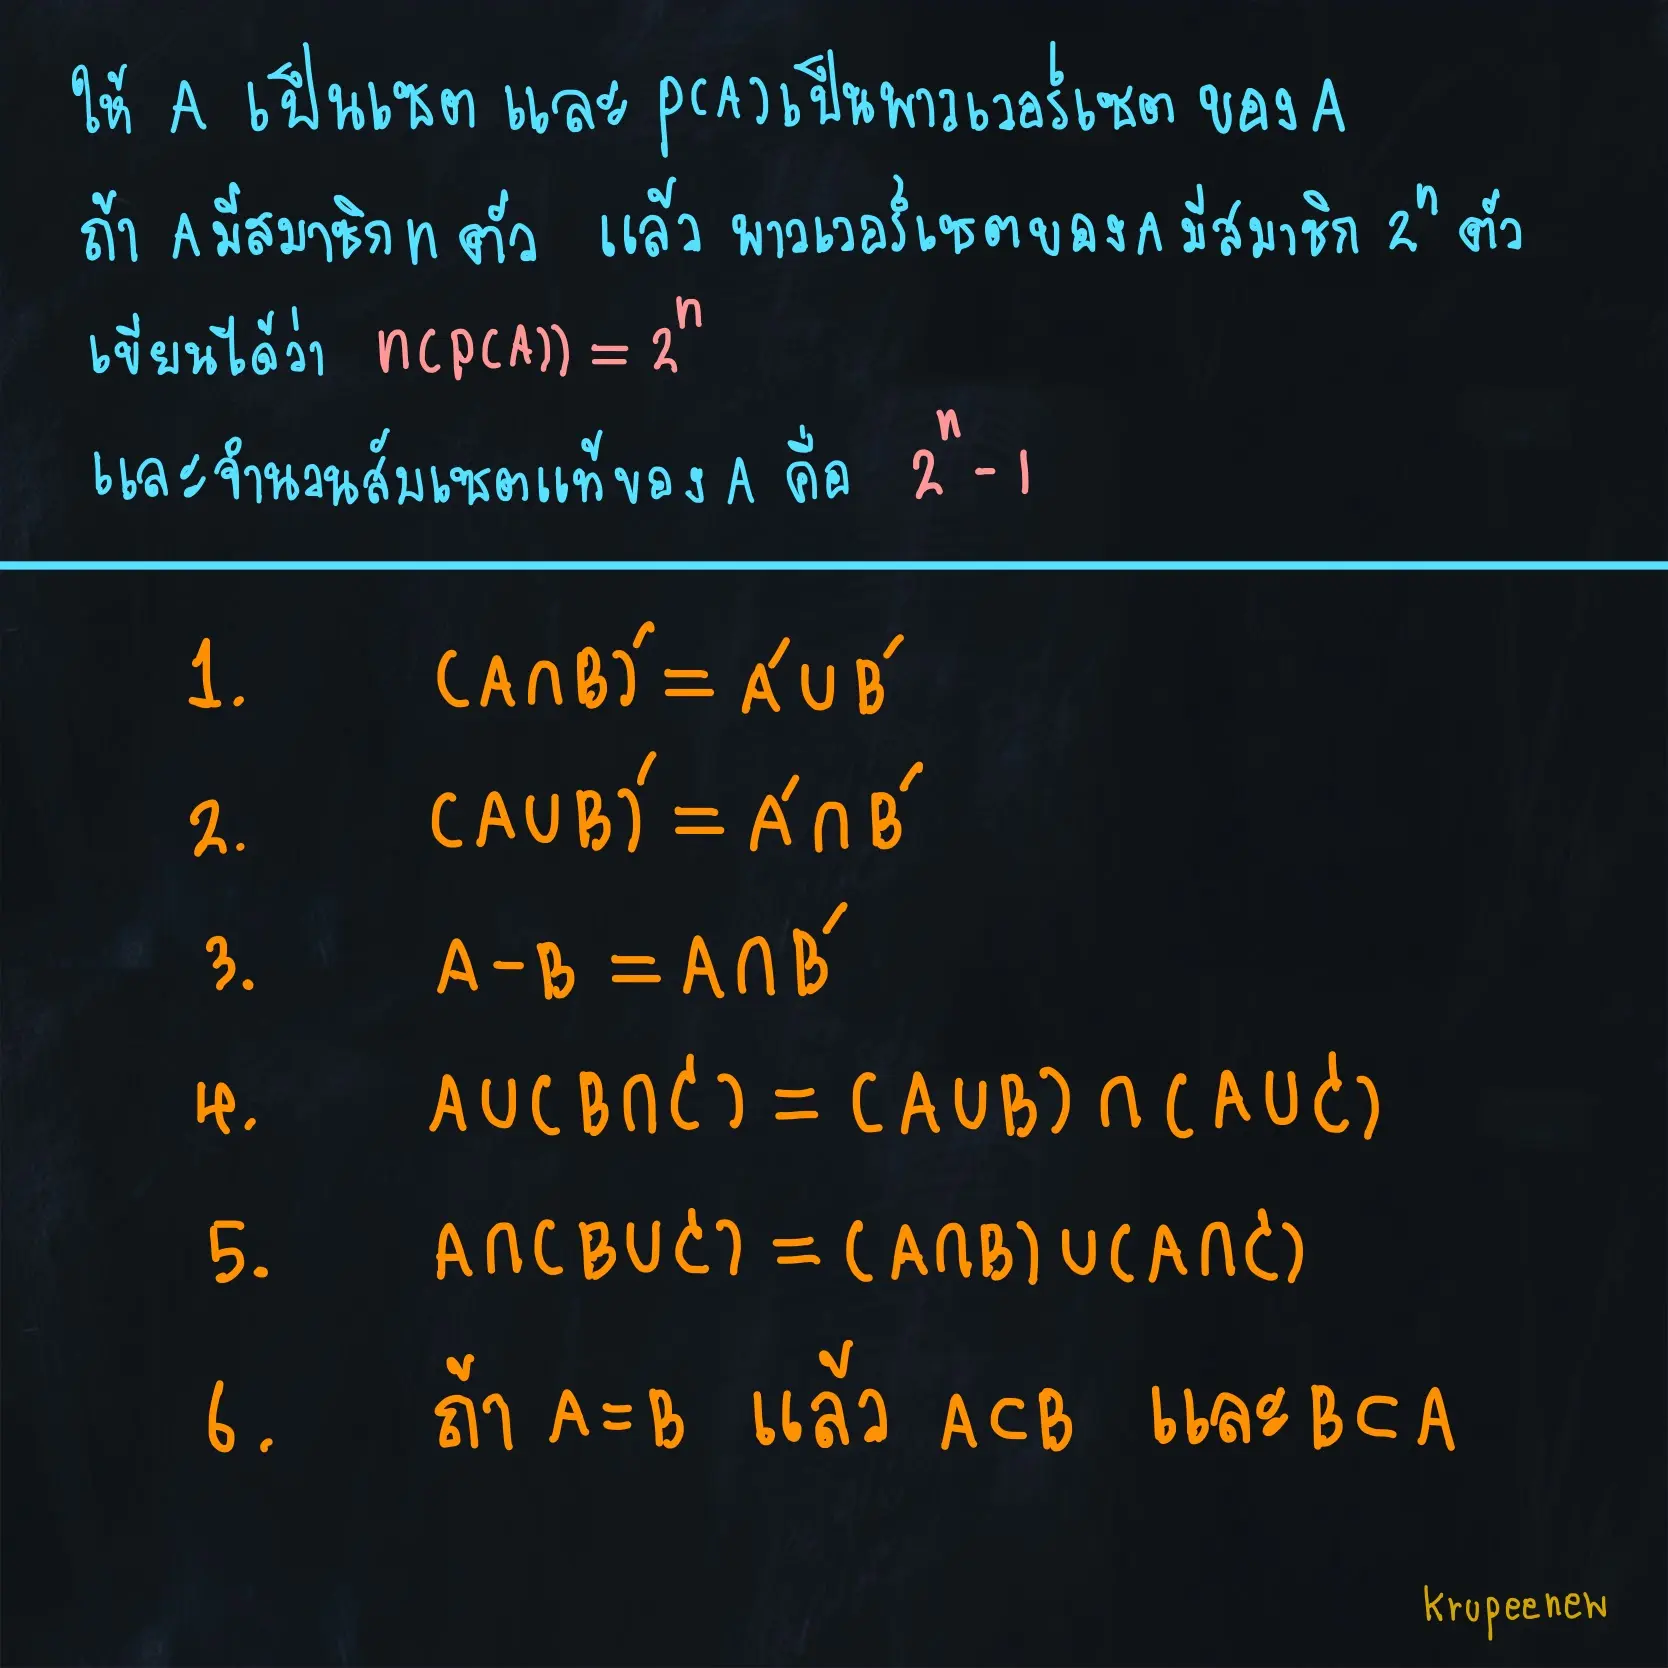 ให้ A เป็นเซต และ P(A) เป็นพาวเวอร์เซต ของ A
ถ้า A มีสมาชิก n ตัว แล้ว พาวเวอร์เซตของ A มีสมาชิก 2ⁿ ตัว
เขียนได้ว่า n(P(A)) = 2ⁿ
และจำนวนสับเซตแท้ของ A คือ 2ⁿ - 1
1. (A∩B)′ = A′∪B′
2. (A∪B)′ = A′∩B′
3. A-B = A∩B′
4. A∪(B∩C) = (A∪B)∩(A∪C)
5. A∩(B∪C) = (A∩B)∪(A∩C)
6. ถ้า A=B แล้ว A⊂B และ B⊂A
krupeenew